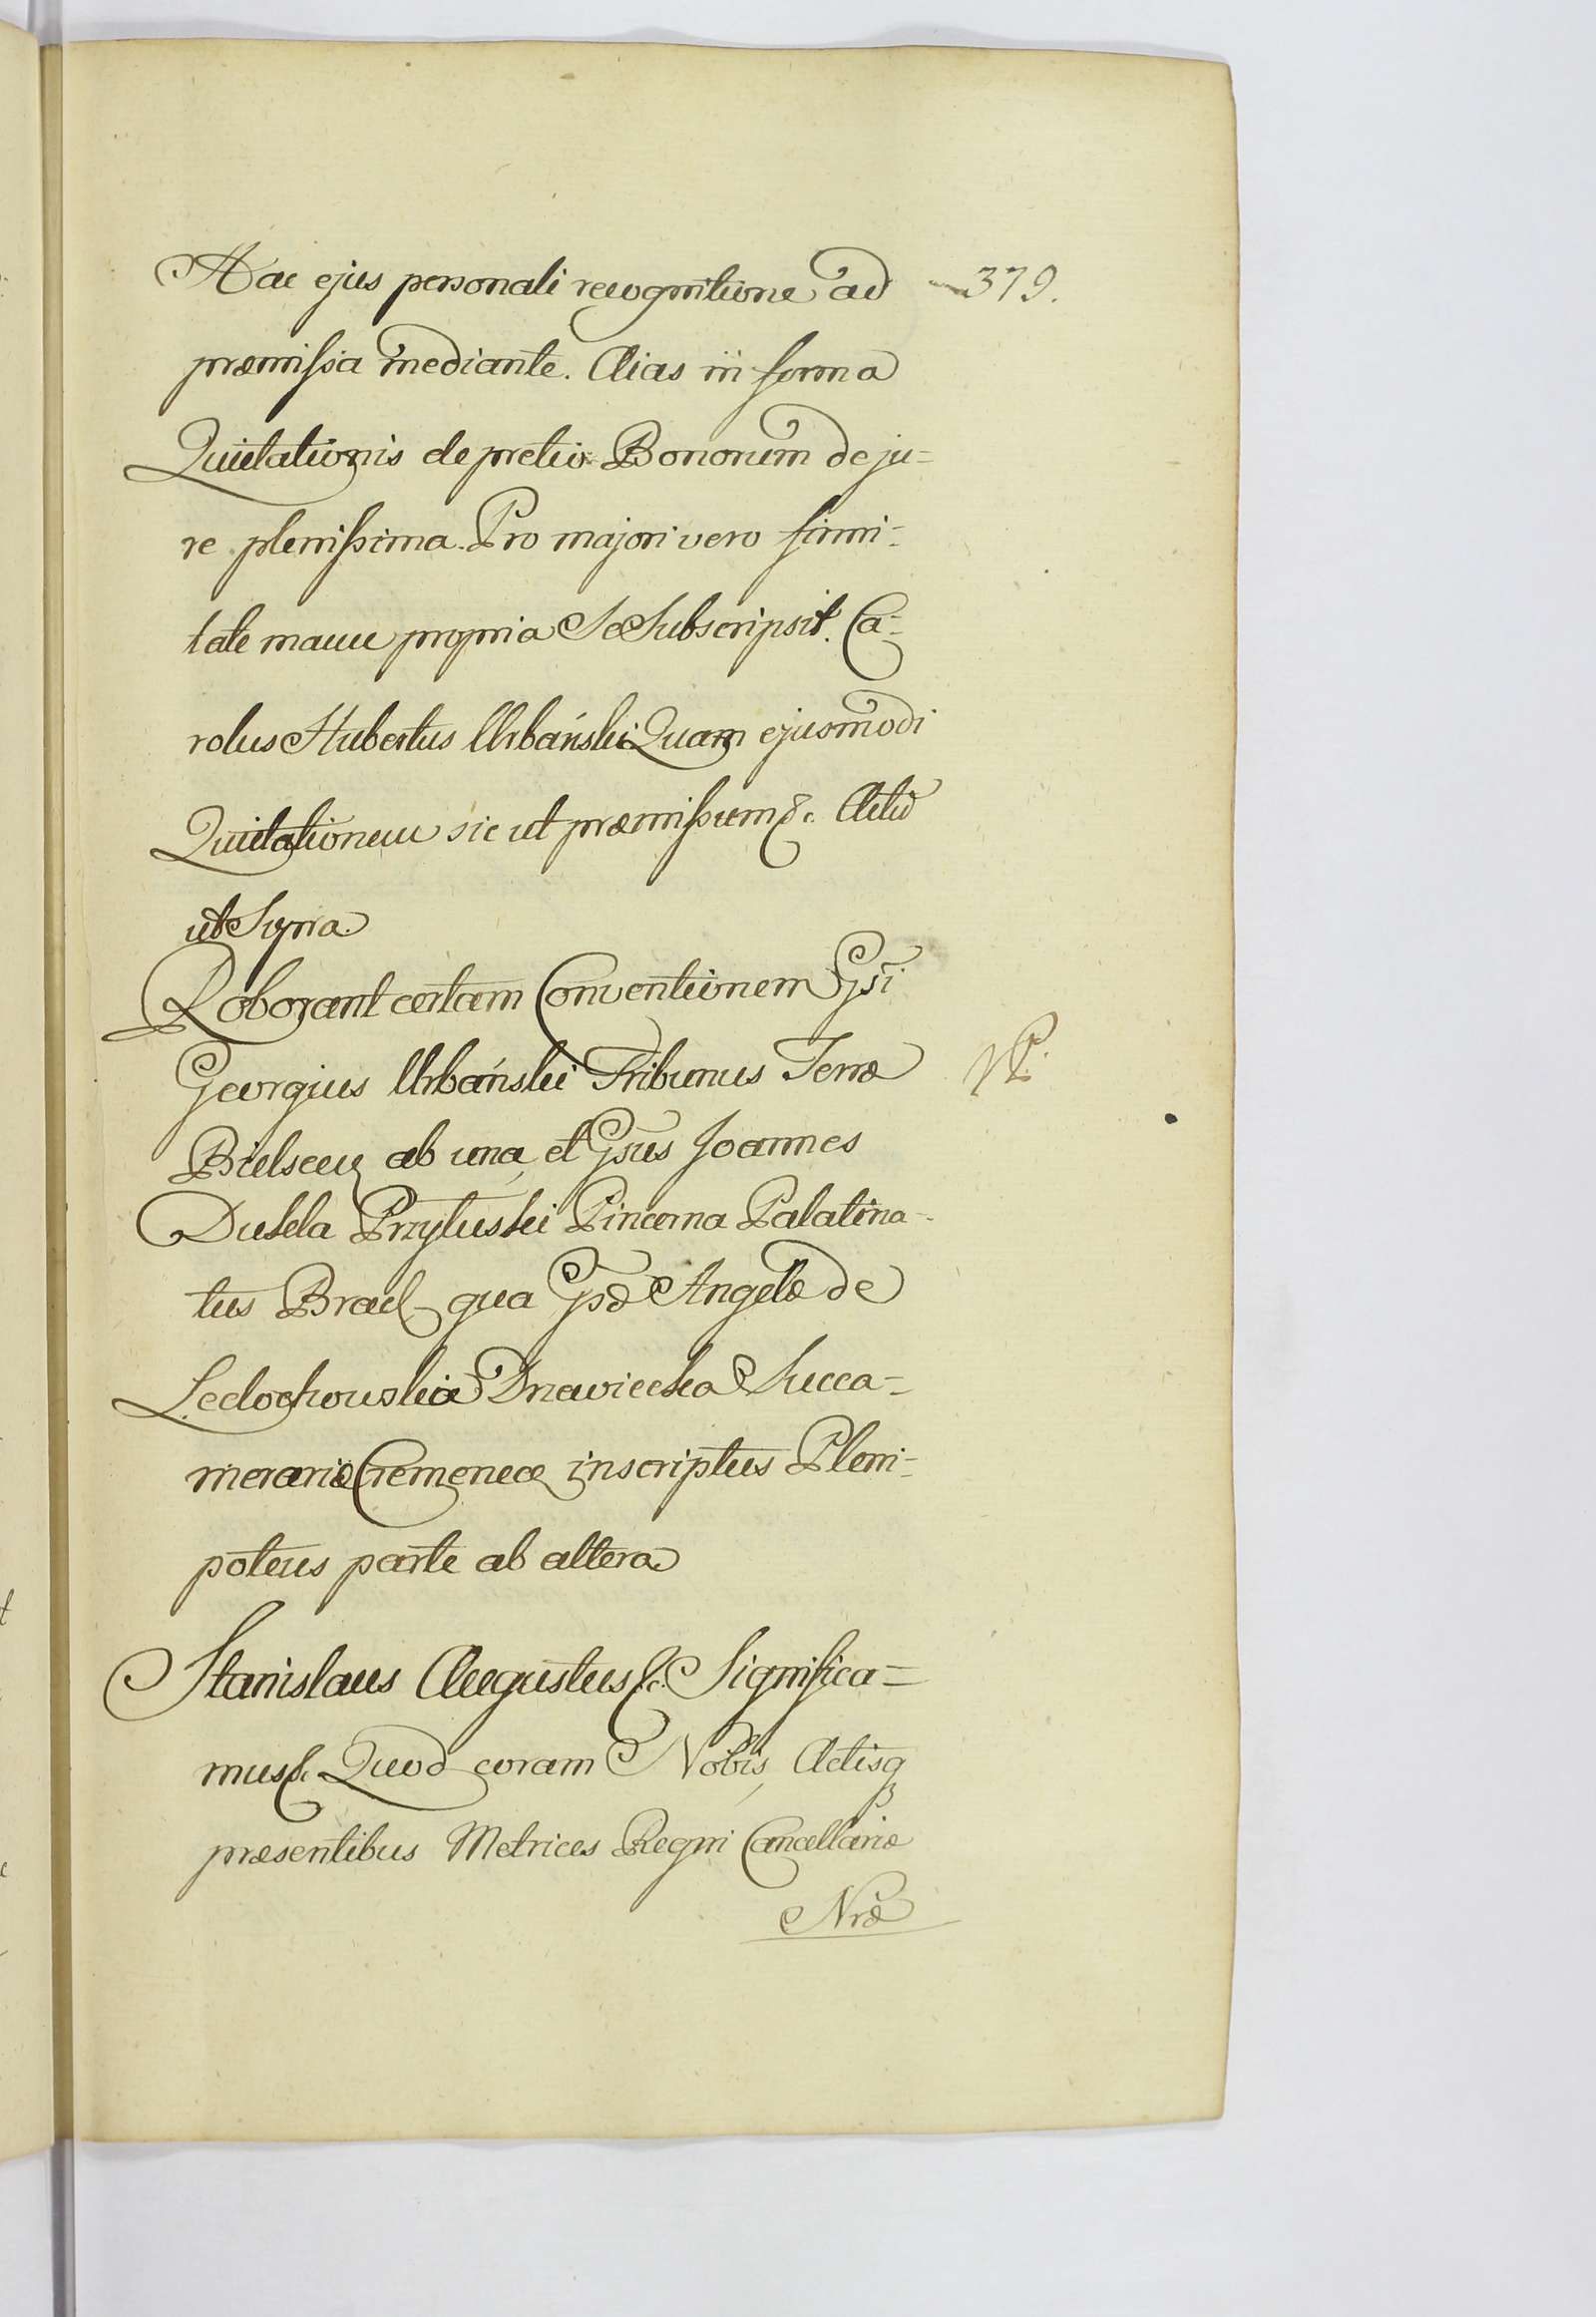 Hac ejus personali recognitione ad
379.
præmissa mediante. Alias in forma
Quietationis de pretio Bonorum de ju=
re plenissima. Pro majori vero firmi=
tate manu propria Se Subscripsit. Ca=
rolus Hubertus Urbański Quam ejusmodi
Quietationem sic ut præmissum &c. Actũ
ut Supra
Roborant certam Conventionem Gsi
Georgius Urbański Tribunus Terræ
Bielscen ab una, et Gsus Joannes
Dukla Przyłuski Pincerna Palatina=
tus Bracl qua Gsæ Angelæ de
Ledochowskie Drewiecka Succa=
merariæ Cremenec inscriptus Pleni=
potens parte ab altera
Stanislaus Augustus &c. Significa=
mus &c. Quod coram Nobis, Actisq
præsentibus Metrices Regni Cancellariæ
Nræ